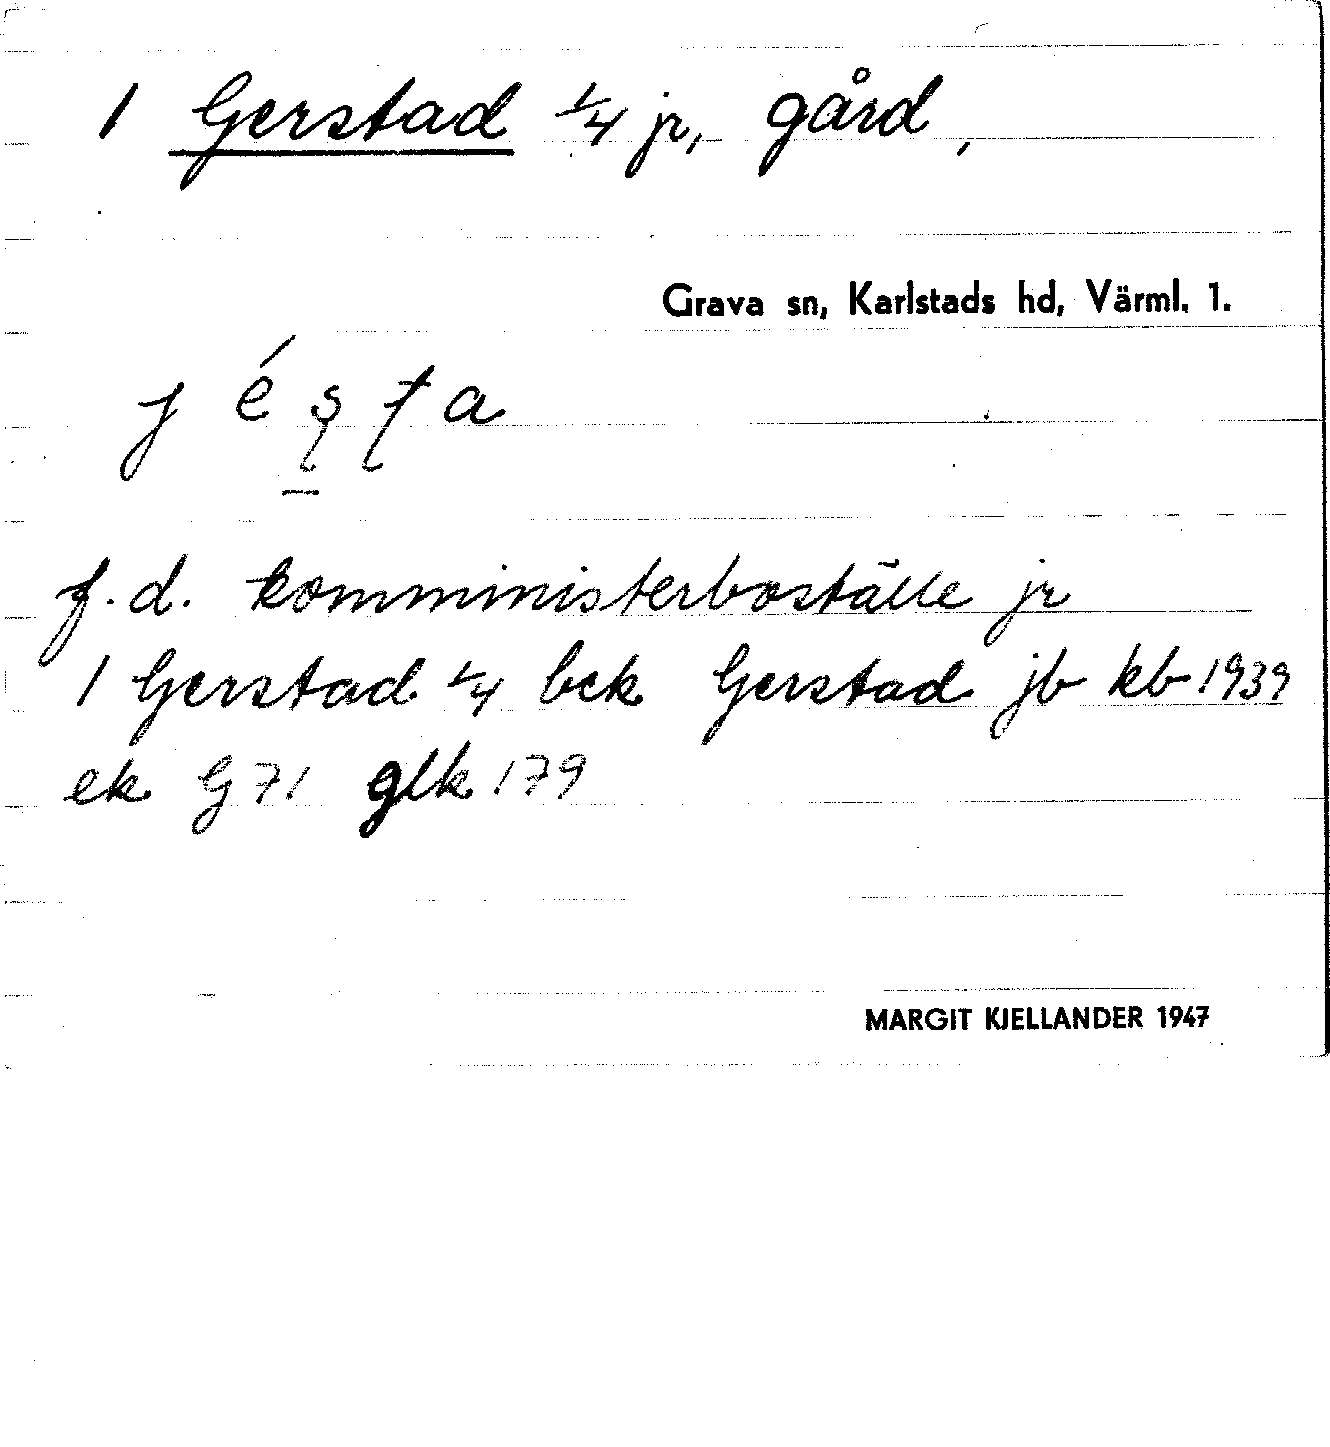 1 Gerstad 1/4 jr, gård,
Grava sn, Karlstads hd, Värml. l.
jéʂʈa
f.d. komministerboställe jr
1 Gerstad 1/4 bek Gerstad jb kb 1939
ek G 71 glk 179
MARGIT KJELLANDER 1947